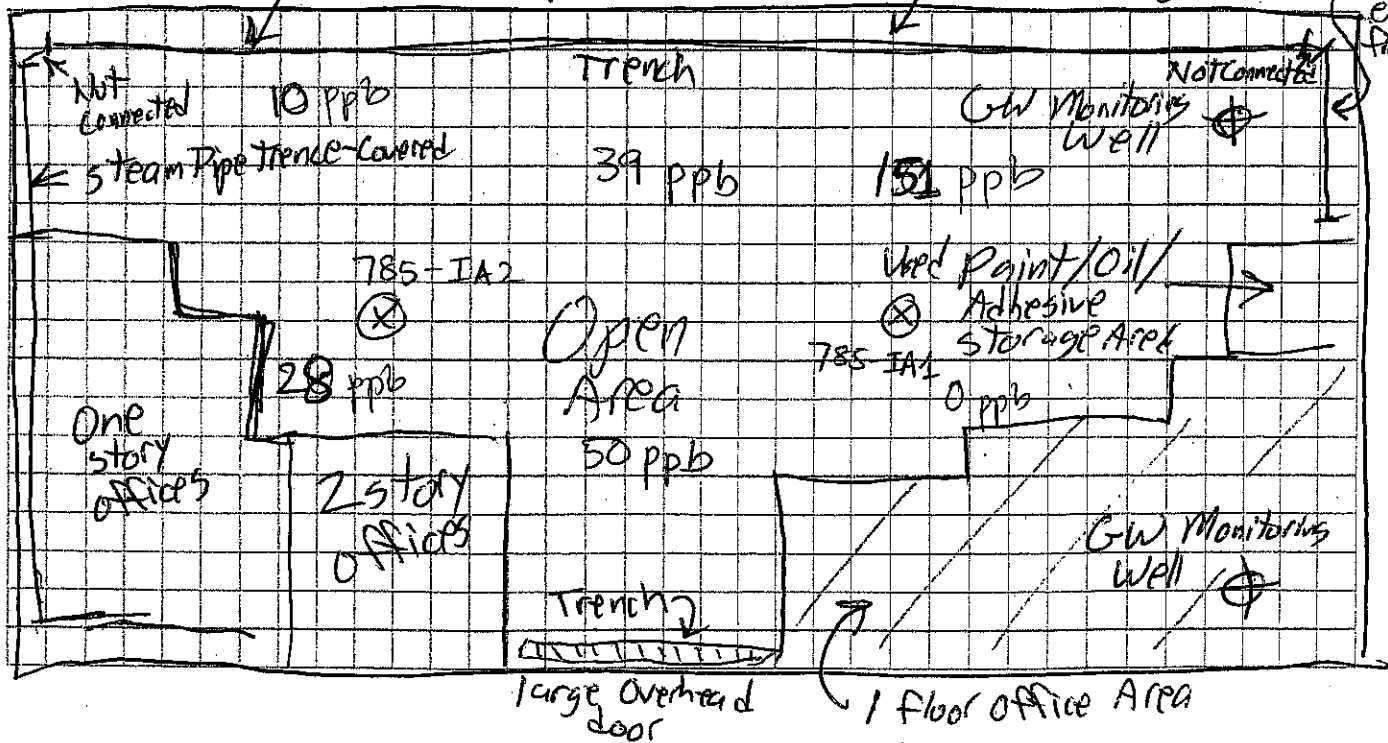 Trench
Not
Connected
10 ppb
Not Connected
GW Monitoring
Well
Steam Pipe Trence-Covered
39 ppb
151 ppb
785-IA2
Used Paint/Oil/
Adhesive
Storage Area
785-IA1
Open
Area
28 ppb
0 ppb
One
story
offices
50 ppb
2 story
offices
GW Monitoring
Well
Trench
large Overhead
door
1 floor office Area